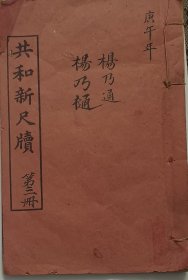 庚午年
楊乃通
楊乃通
共和新尺牘
第三冊